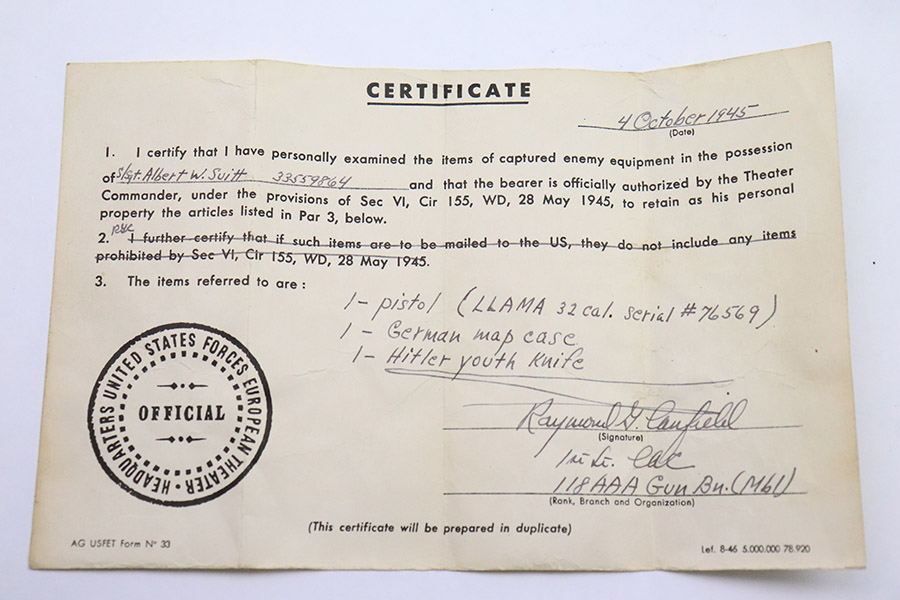 CERTIFICATE
4 October 1945
(Date)
1. I certify that I have personally examined the items of captured enemy equipment in the possession
of S/Sgt. Albert W. Suitt 33559864 and that the bearer is officially authorized by the Theater
Commander, under the provisions of Sec VI, Cir 155, WD, 28 May 1945, to retain as his personal
property the articles listed in Par 3, below.
2. I further certify that if such items are to be mailed to the US, they do not include any items
prohibited by Sec VI, Cir 155, WD, 28 May 1945.
3. The items referred to are :
1- pistol (LLAMA 32 cal. serial # 76569)
1- German map case
1- Hitler youth knife
HEADQUARTERS UNITED STATES FORCES EUROPEAN THEATER
OFFICIAL
Raymond G. Canfield
(Signature)
1st Lt. CAC
118 AAA Gun Bn. (Mbl)
(Rank, Branch and Organization)
(This certificate will be prepared in duplicate)
AG USFET Form N° 33
Lef. 8-46 5.000.000 78.920